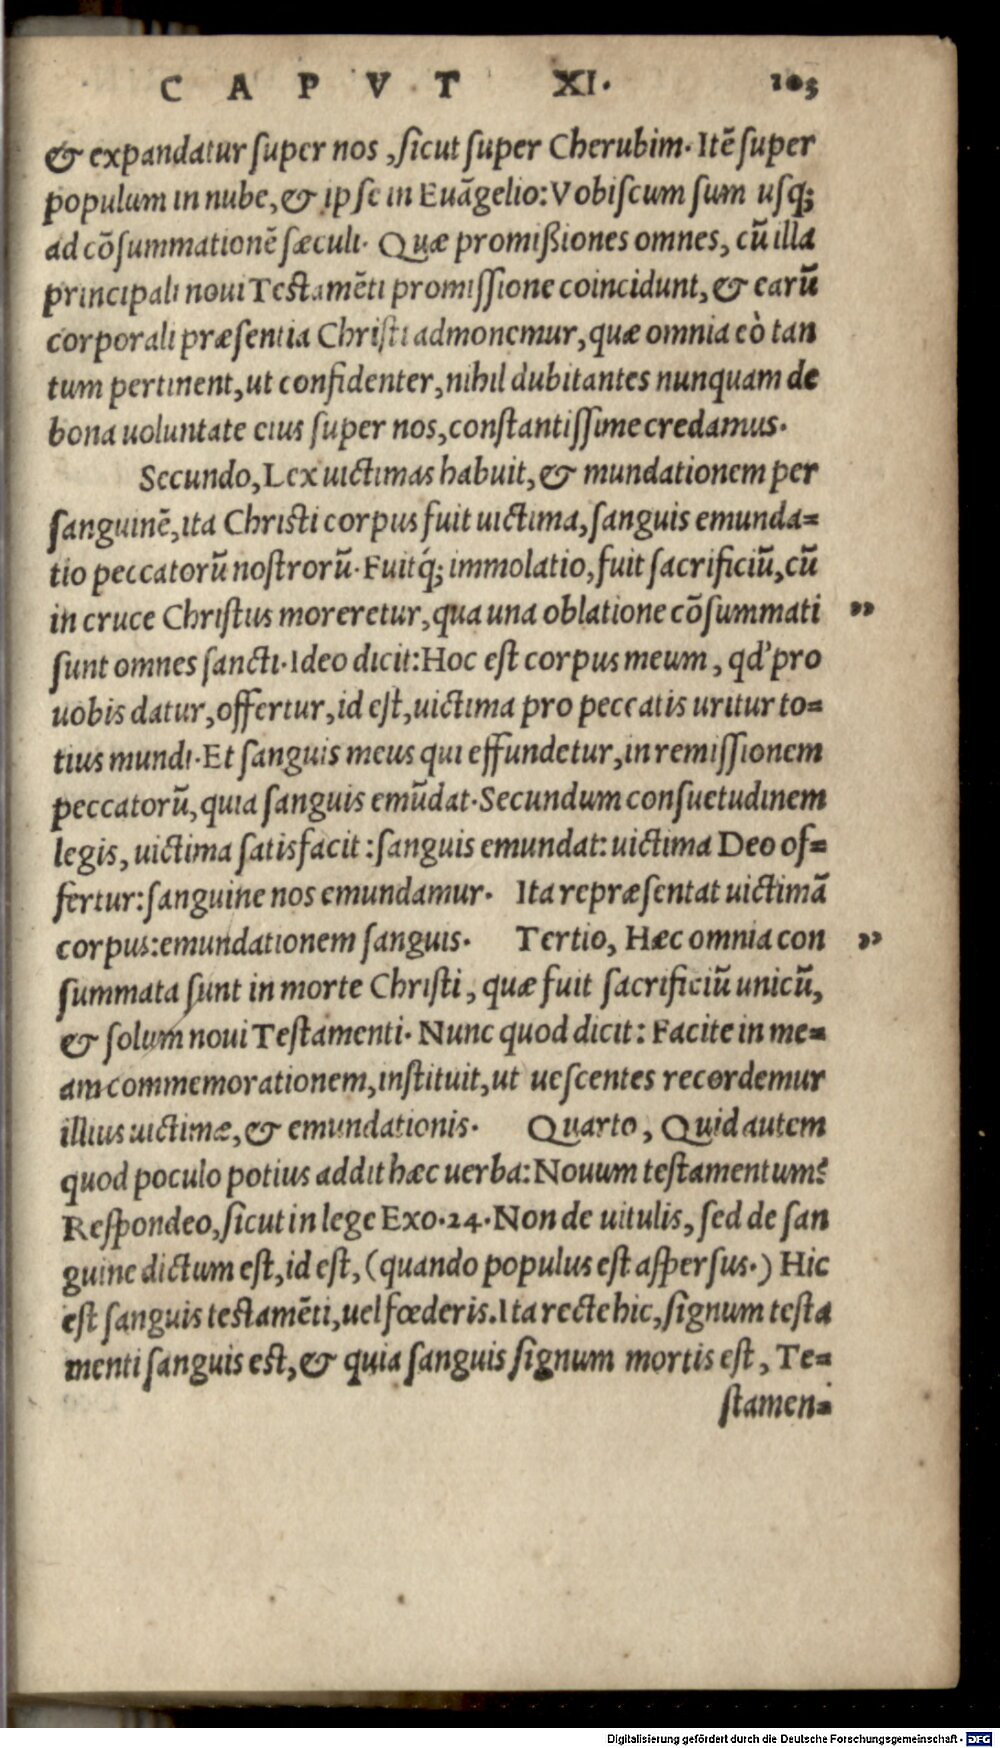 CAPVT XI. 103
& expandatur ſuper nos, ſicut ſuper Cherubim. Itē ſuper
populum in nube, & ipſe in Euāgelio: Vobiſcum ſum uſq;
ad cōſummationē ſæculi. Quæ promißiones omnes, cū illa
principali noui Teſtamēti promiſſione coincidunt, & earū
corporali præſentia Chriſti admonemur, quæ omnia eò tan
tum pertinent, ut confidenter, nihil dubitantes nunquam de
bona uoluntate eius ſuper nos, conſtantiſſime credamus.
Secundo, Lex uictimas habuit, & mundationem per
ſanguinē, ita Chriſti corpus fuit uictima, ſanguis emunda=
tio peccatorū noſtrorū. Fuitq́; immolatio, fuit ſacrificiū, cū
in cruce Chriſtus moreretur, qua una oblatione cōſummati „
ſunt omnes ſancti. Ideo dicit: Hoc eſt corpus meum, qd' pro
uobis datur, offertur, id eſt, uictima pro peccatis uritur to=
tius mundi. Et ſanguis meus qui effundetur, in remiſſionem
peccatorū, quia ſanguis emūdat. Secundum conſuetudinem
legis, uictima ſatisfacit: ſanguis emundat: uictima Deo of=
fertur: ſanguine nos emundamur. Ita repræſentat uictimā
corpus: emundationem ſanguis. Tertio, Hæc omnia con „
ſummata ſunt in morte Chriſti, quæ fuit ſacrificiū unicū,
& ſolum noui Teſtamenti. Nunc quod dicit: Facite in me=
am commemorationem, inſtituit, ut ueſcentes recordemur
illius uictimæ, & emundationis. Quarto, Quid autem
quod poculo potius addit hæc uerba: Nouum teſtamentum?
Reſpondeo, ſicut in lege Exo. 24. Non de uitulis, ſed de ſan
guine dictum eſt, id eſt, (quando populus eſt aſperſus.) Hic
eſt ſanguis teſtamēti, uel fœderis. Ita recte hic, ſignum teſta
menti ſanguis eſt, & quia ſanguis ſignum mortis eſt, Te=
ſtamen=
Digitalisierung gefördert durch die Deutsche Forschungsgemeinschaft - DFG